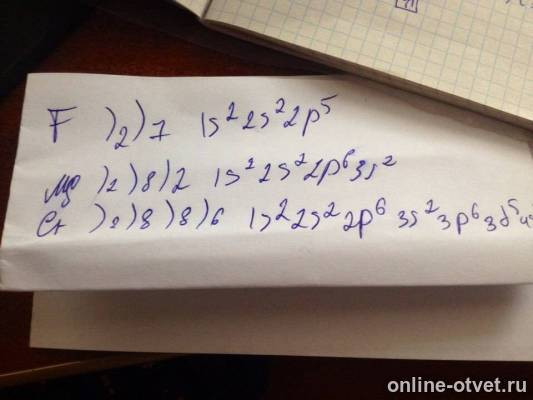 F )2)7 1s² 2s² 2p⁵
Mg )2)8)2 1s² 2s² 2p⁶ 3s²
Cr )2)8)8)6 1s² 2s² 2p⁶ 3s² 3p⁶ 3d⁵ 4s
online-otvet.ru